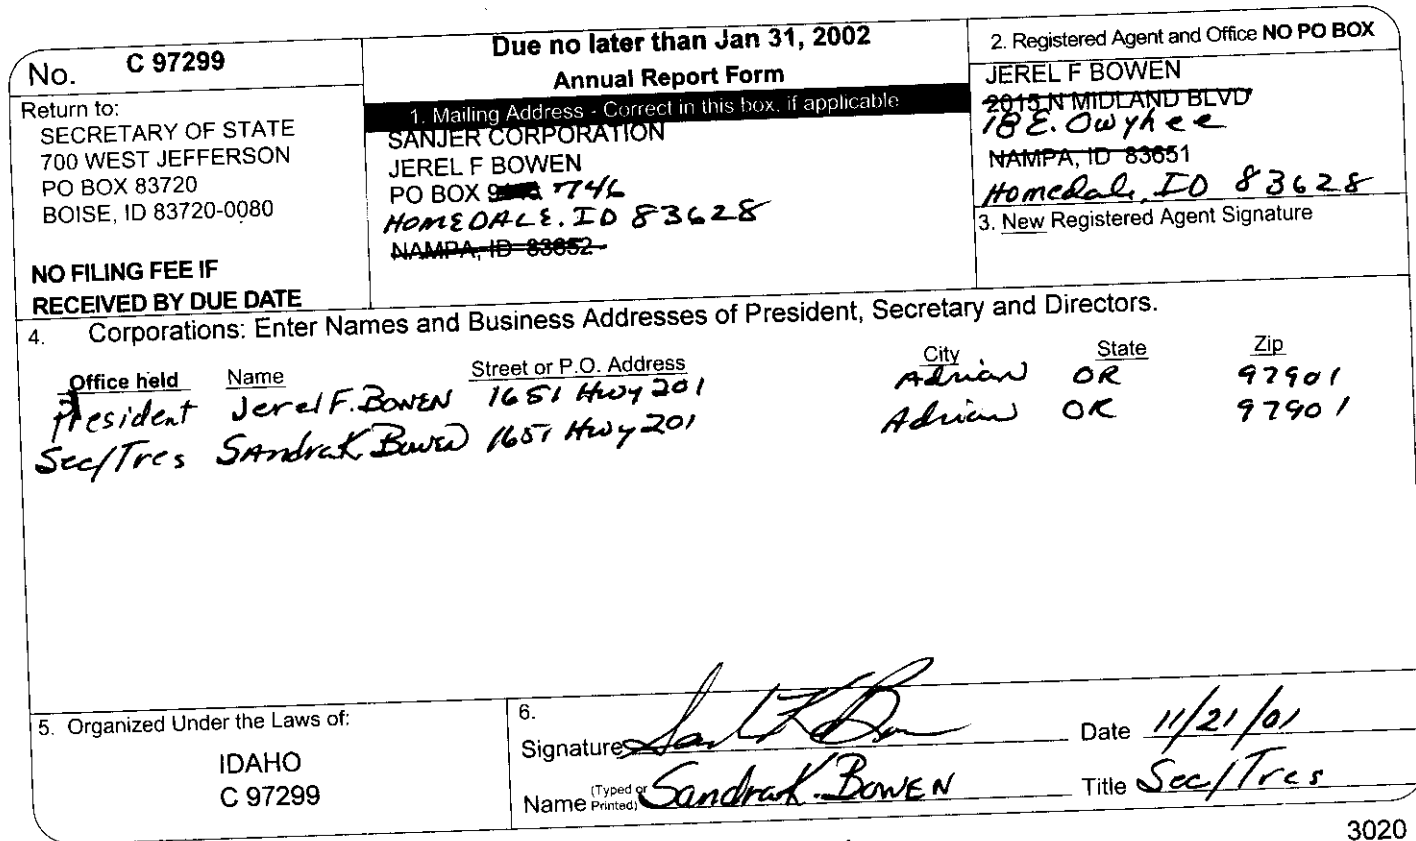 No. C 97299
Return to:
SECRETARY OF STATE
700 WEST JEFFERSON
PO BOX 83720
BOISE, ID 83720-0080
NO FILING FEE IF
RECEIVED BY DUE DATE
Due no later than Jan 31, 2002
Annual Report Form
1. Mailing Address - Correct in this box, if applicable
SANJER CORPORATION
JEREL F BOWEN
PO BOX 746
HOMEDALE. ID 83628
NAMPA, ID 83652
2. Registered Agent and Office NO PO BOX
JEREL F BOWEN
2015 N MIDLAND BLVD
18 E. Owyhee
NAMPA, ID 83651
Homedale, ID 83628
3. New Registered Agent Signature
4. Corporations: Enter Names and Business Addresses of President, Secretary and Directors.
Office held Name Street or P.O. Address City State Zip
President Jerel F. Bowen 1651 Hwy 201 Adrian OR 97901
Sec/Tres Sandra K Bowen 1651 Hwy 201 Adrian OR 97901
5. Organized Under the Laws of:
IDAHO
C 97299
6.
Signature Date 11/21/01
Name (Typed or Printed) Sandra K. Bowen Title Sec/Tres
3020